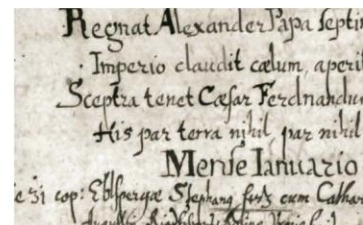 Regnat Alexander Papa septi
Imperio claudit cælum, aperi
Sceptra tenet Cæsar Ferdnandu
His par terra nihil, par nihil
Mense Ianuario
31 cop: Eblspergæ Stephang eum Cathar